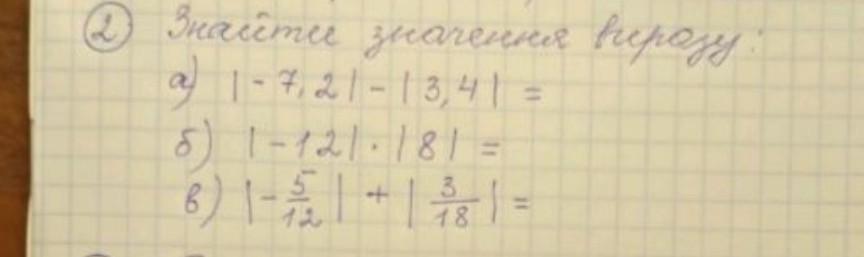 ② Знайти значення виразу:
а) |-7,2| - |3,4| =
б) |-12| · |8| =
в) |-5/12| + |3/18| =